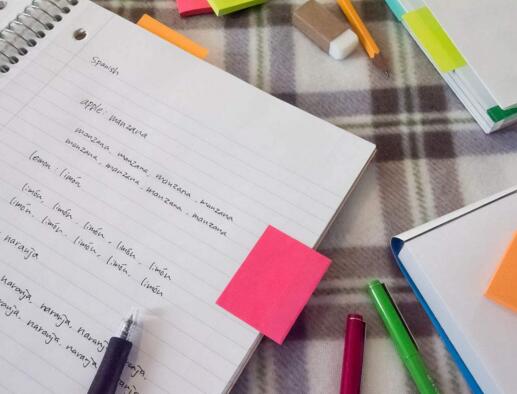 Spanish
apple: manzana
manzana, manzana, manzana, manzana
manzana, manzana, manzana, manzana
lemon: limón
limón, limón, limón, limón, limón
limón, limón, limón, limón, limón
naranja
naranja, naranja, naranja,
naranja, naranja, naranja